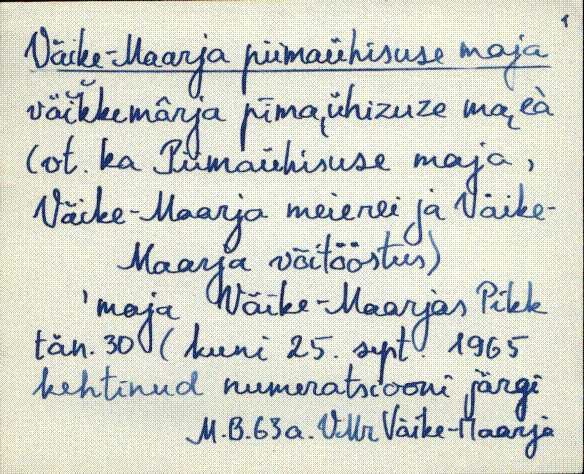 1
Väike-Maarja piimaühisuse maja
väikkemârja pīmaühizuze ma eà
(ot. ka Piimaühisuse maja,
Väike-Maarja meierei ja Väike-
Maarja võitööstus)
'maja Väike-Maarjas Pikk
tän. 30 (kuni 25. sept. 1965
kehtinud numeratsiooni järgi
M.B.63a. VMr Väike-Maarja